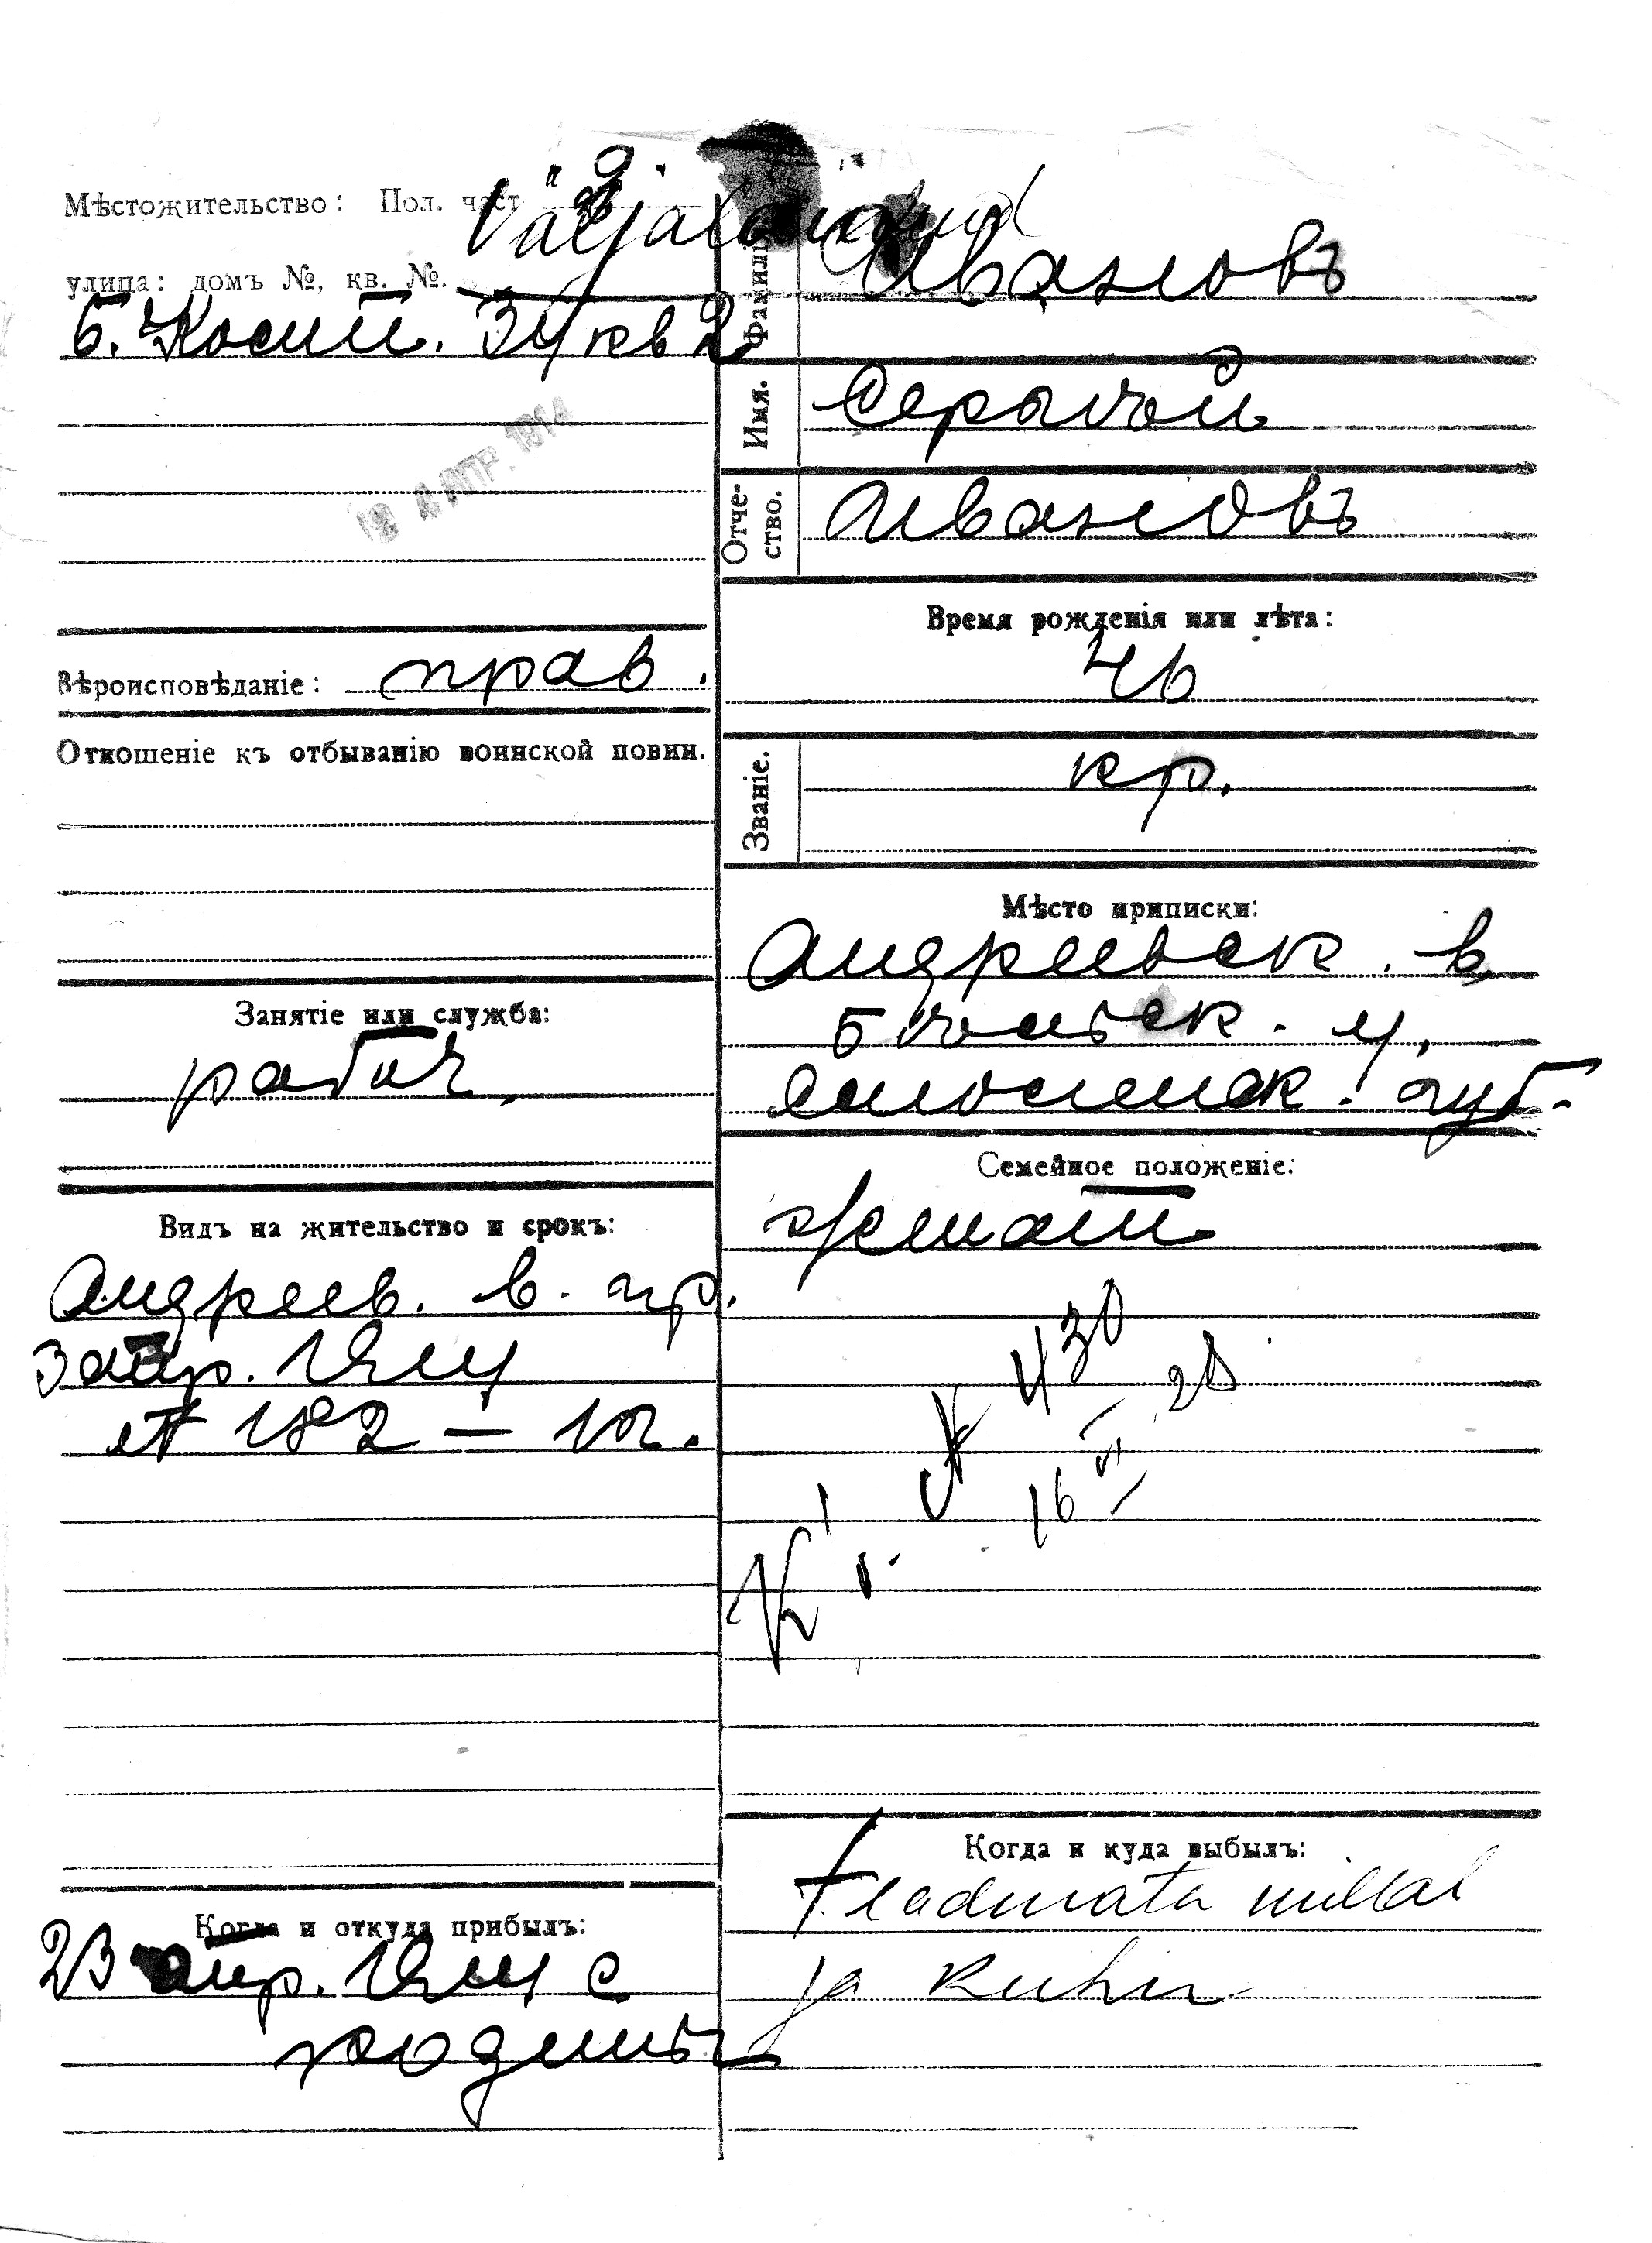 Väljaläinud
Мѣстожительство: Пол. част.
улица: домъ №, кв. №.
Б. Косит. 34 кв 2
4 АПР. 1914
Вѣроисповѣданіе: прав.
Отношеніе къ отбыванію воинской повин.
Занятіе или служба:
рабоч.
Видъ на жительство и срокъ:
Андреев. в. пр.
3 апр. 1914
№ 182 — 1 г.
Когда и откуда прибылъ:
23 апр. 1914 с
родины
Фамилія
Ивановъ
Имя.
Сергѣй
Отче-
ство.
Ивановъ
Время рожденія или лѣта:
46
Званіе.
кр.
Мѣсто приписки:
Андреевск. в.
ск. у.
Смоленск. губ.
Семейное положеніе:
женат
№ 430
16 VI 20
Когда и куда выбылъ:
Teadmata millal
ja kuhu